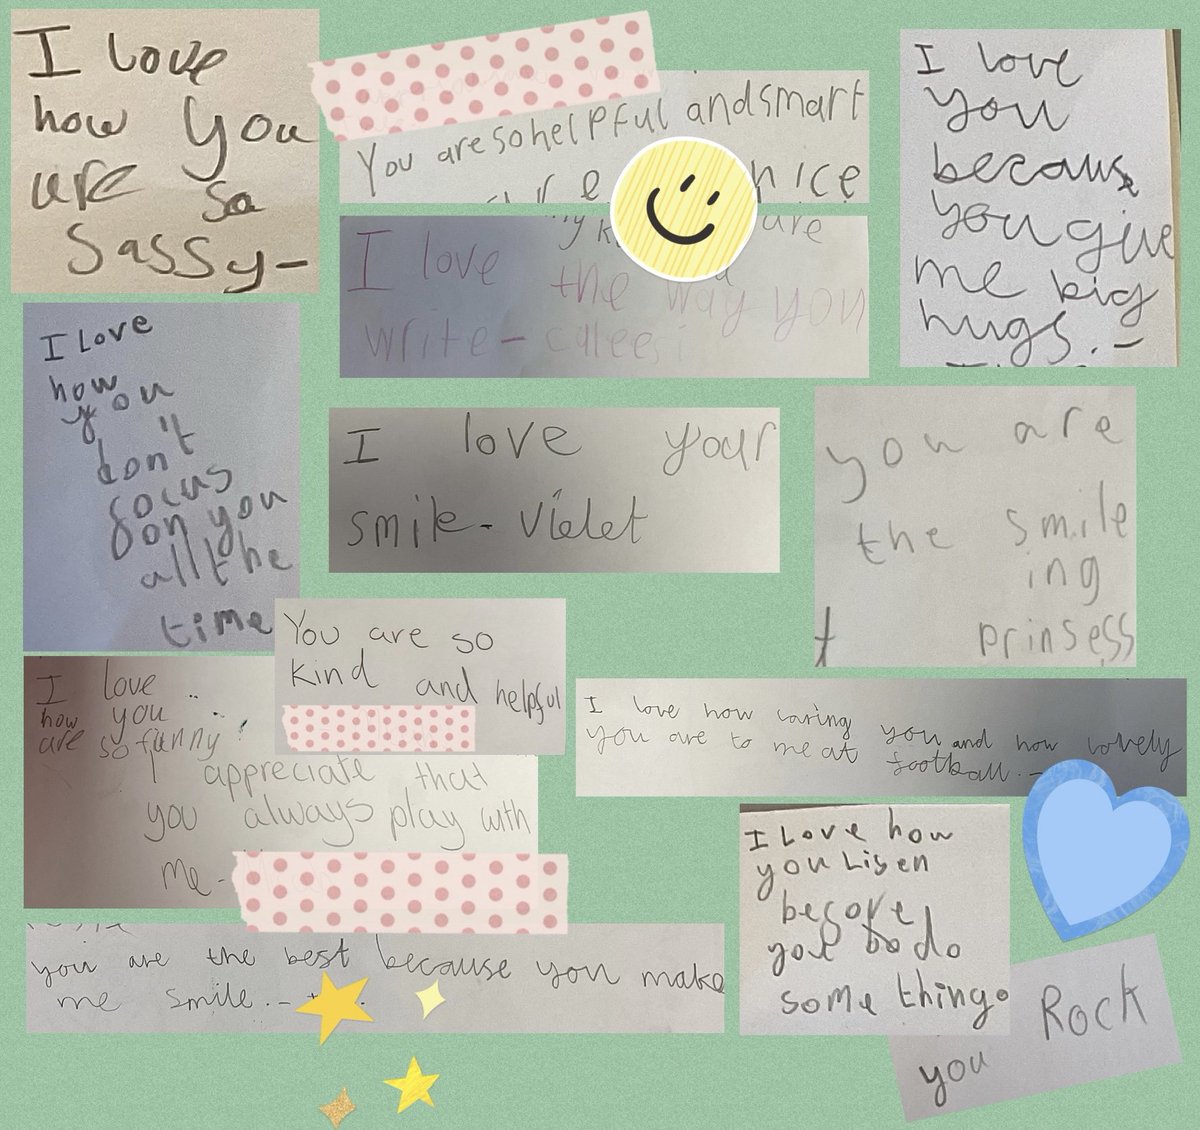 I love
how you
are so
sassy-
You are so helpful and smart
nice
are
I love the way you
write-
I love
you
because
you give
me big
hugs.-
I Love
how
you
don't
focus
on you
all the
time
I love your
smile- Violet
you are
the smile
ing
prinsess
You are so
kind and helpful
I love
how you
are so funny
I appreciate that
you always play with
me-
I love how caring you and how lovely
you are to me at football.-
you are the best because you make
me smile.-
I Love how
you Lisen
before
you do
some thing.
you Rock